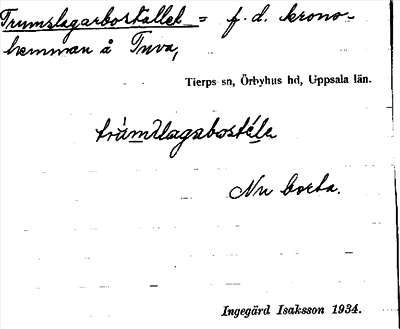 Trumslagarbostället = f.d. krono-
hemman å Tuva,
Tierps sn, Örbyhus hd, Uppsala län.
tràm̲slagabostél̲e
Nu borta.
Ingegärd Isaksson 1934.